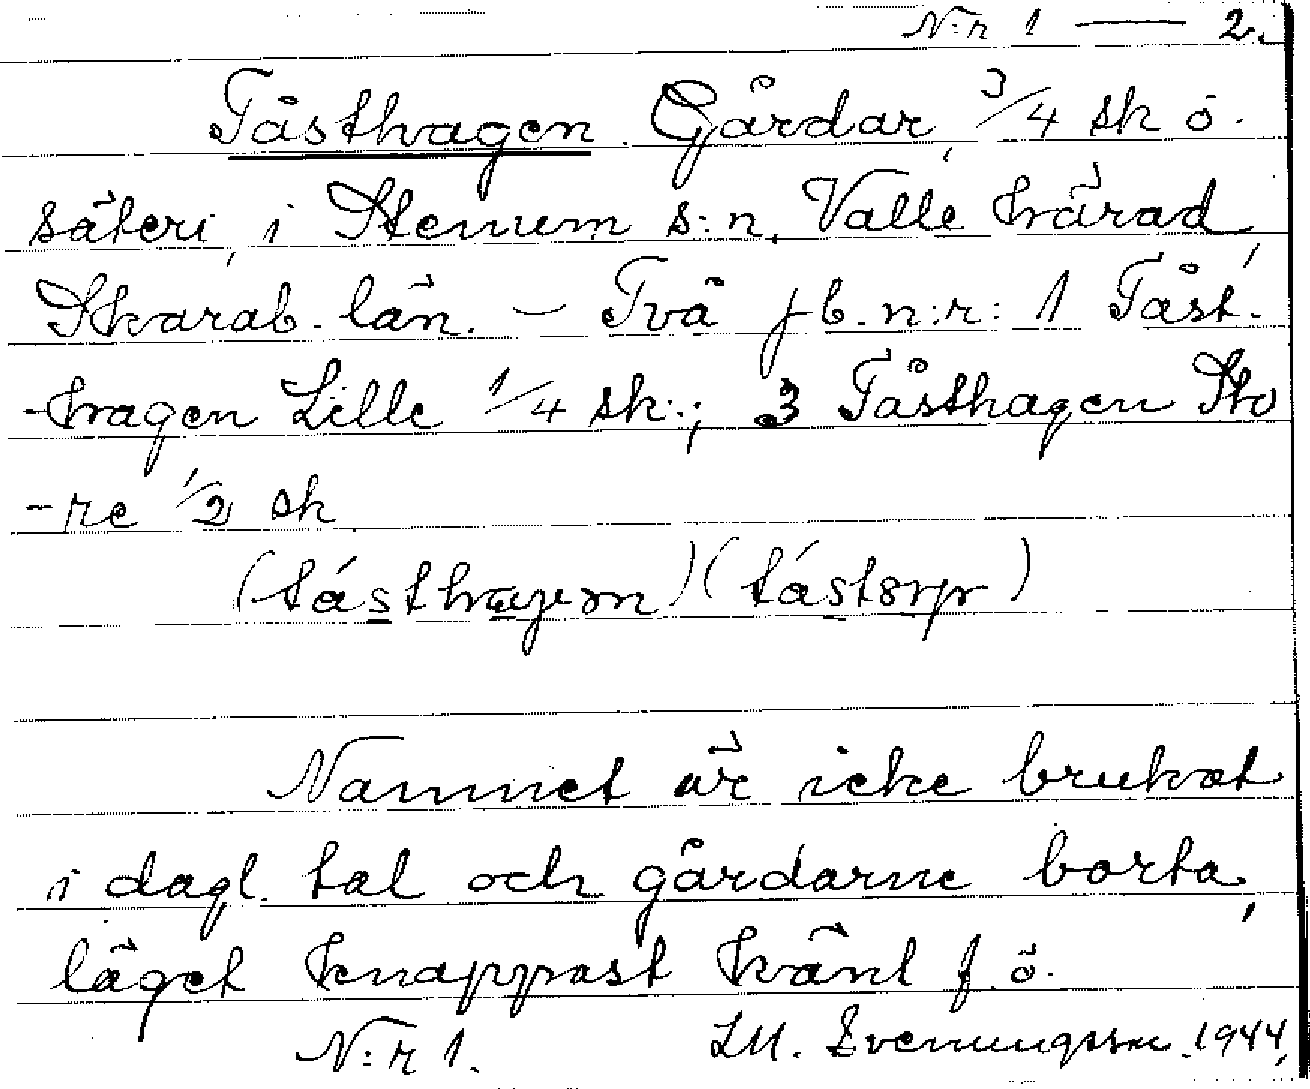 N:r 1 — 2.
Tåsthagen. Gårdar, 3/4 sk ö.
säteri, i Stenum s:n, Valle härad,
Skarab. län. – Två jb. n:r: 1 Tåst-
-hagen Lille 1/4 sk.; 3 Tåsthagen Sto
-re 1/2 sk
(tásthagen) (tástorp)
Namnet är icke brukat
i dagl. tal och gårdarne borta,
läget knappast känt f. ö.
N:r 1. LM. Svenungsson. 1944,